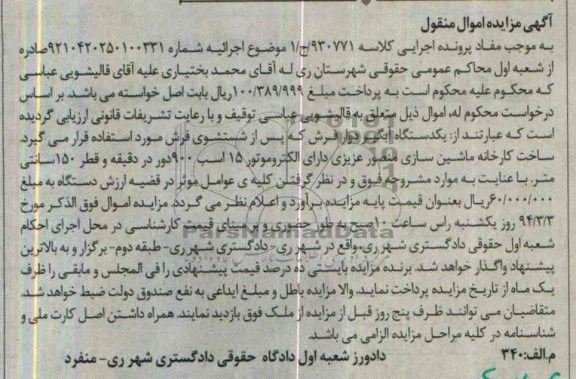 آگهی مزایده اموال منقول
به موجب مفاد پرونده اجرایی کلاسه ۹۳۰۷۷۱/ج/۱ موضوع اجرائیه شماره ۹۲۱۰۴۲۰۲۵۰۱۰۰۳۳۱صادره
از شعبه اول محاکم عمومی حقوقی شهرستان ری له آقای محمد بختیاری علیه آقای قالیشویی عباسی
که محکوم علیه محکوم است به پرداخت مبلغ ۱۰۰/۳۸۹/۹۹۹ریال بابت اصل خواسته می باشد. بر اساس
درخواست محکوم له، اموال ذیل متعلق به قالیشویی عباسی توقیف و با رعایت تشریفات قانونی ارزیابی گردیده
است که عبارتند از: یکدستگاه آبگیر دور فرش که پس از شستشوی فرش مورد استفاده قرار می گیرد.
ساخت کارخانه ماشین سازی منصور عزیزی دارای الکتروموتور ۱۵ اسب ۹۰۰دور در دقیقه و قطر ۱۵۰سانتی
متر. با عنایت به موارد مشروحه فوق و در نظر گرفتن کلیه ی عوامل موثر در قضیه ارزش دستگاه به مبلغ
۶۰/۰۰۰/۰۰۰ریال بعنوان قیمت پایه مزایده برآورد و اعلام نظر می گردد. مزایده اموال فوق الذکر مورخ
۹۴/۳/۳ روز یکشنبه راس ساعت ۱۰صبح به طور حضوری و بر مبنای قیمت کارشناسی در محل اجرای احکام
شعبه اول حقوقی دادگستری شهر ری، واقع در شهر ری- دادگستری شهر ری- طبقه دوم- برگزار و به بالاترین
پیشنهاد واگذار خواهد شد. برنده مزایده بایستی ده درصد قیمت پیشنهادی را فی المجلس و مابقی را ظرف
یک ماه از تاریخ مزایده پرداخت نماید. والا مزایده باطل و مبلغ ایداعی به نفع صندوق دولت ضبط خواهد شد.
متقاضیان می توانند ظرف پنج روز قبل از مزایده از ملک فوق بازدید نمایند. همراه داشتن اصل کارت ملی و
شناسنامه در کلیه مراحل مزایده الزامی می باشد.
م.الف:۳۴۰ دادورز شعبه اول دادگاه حقوقی دادگستری شهر ری- منفرد
ParsNamadData